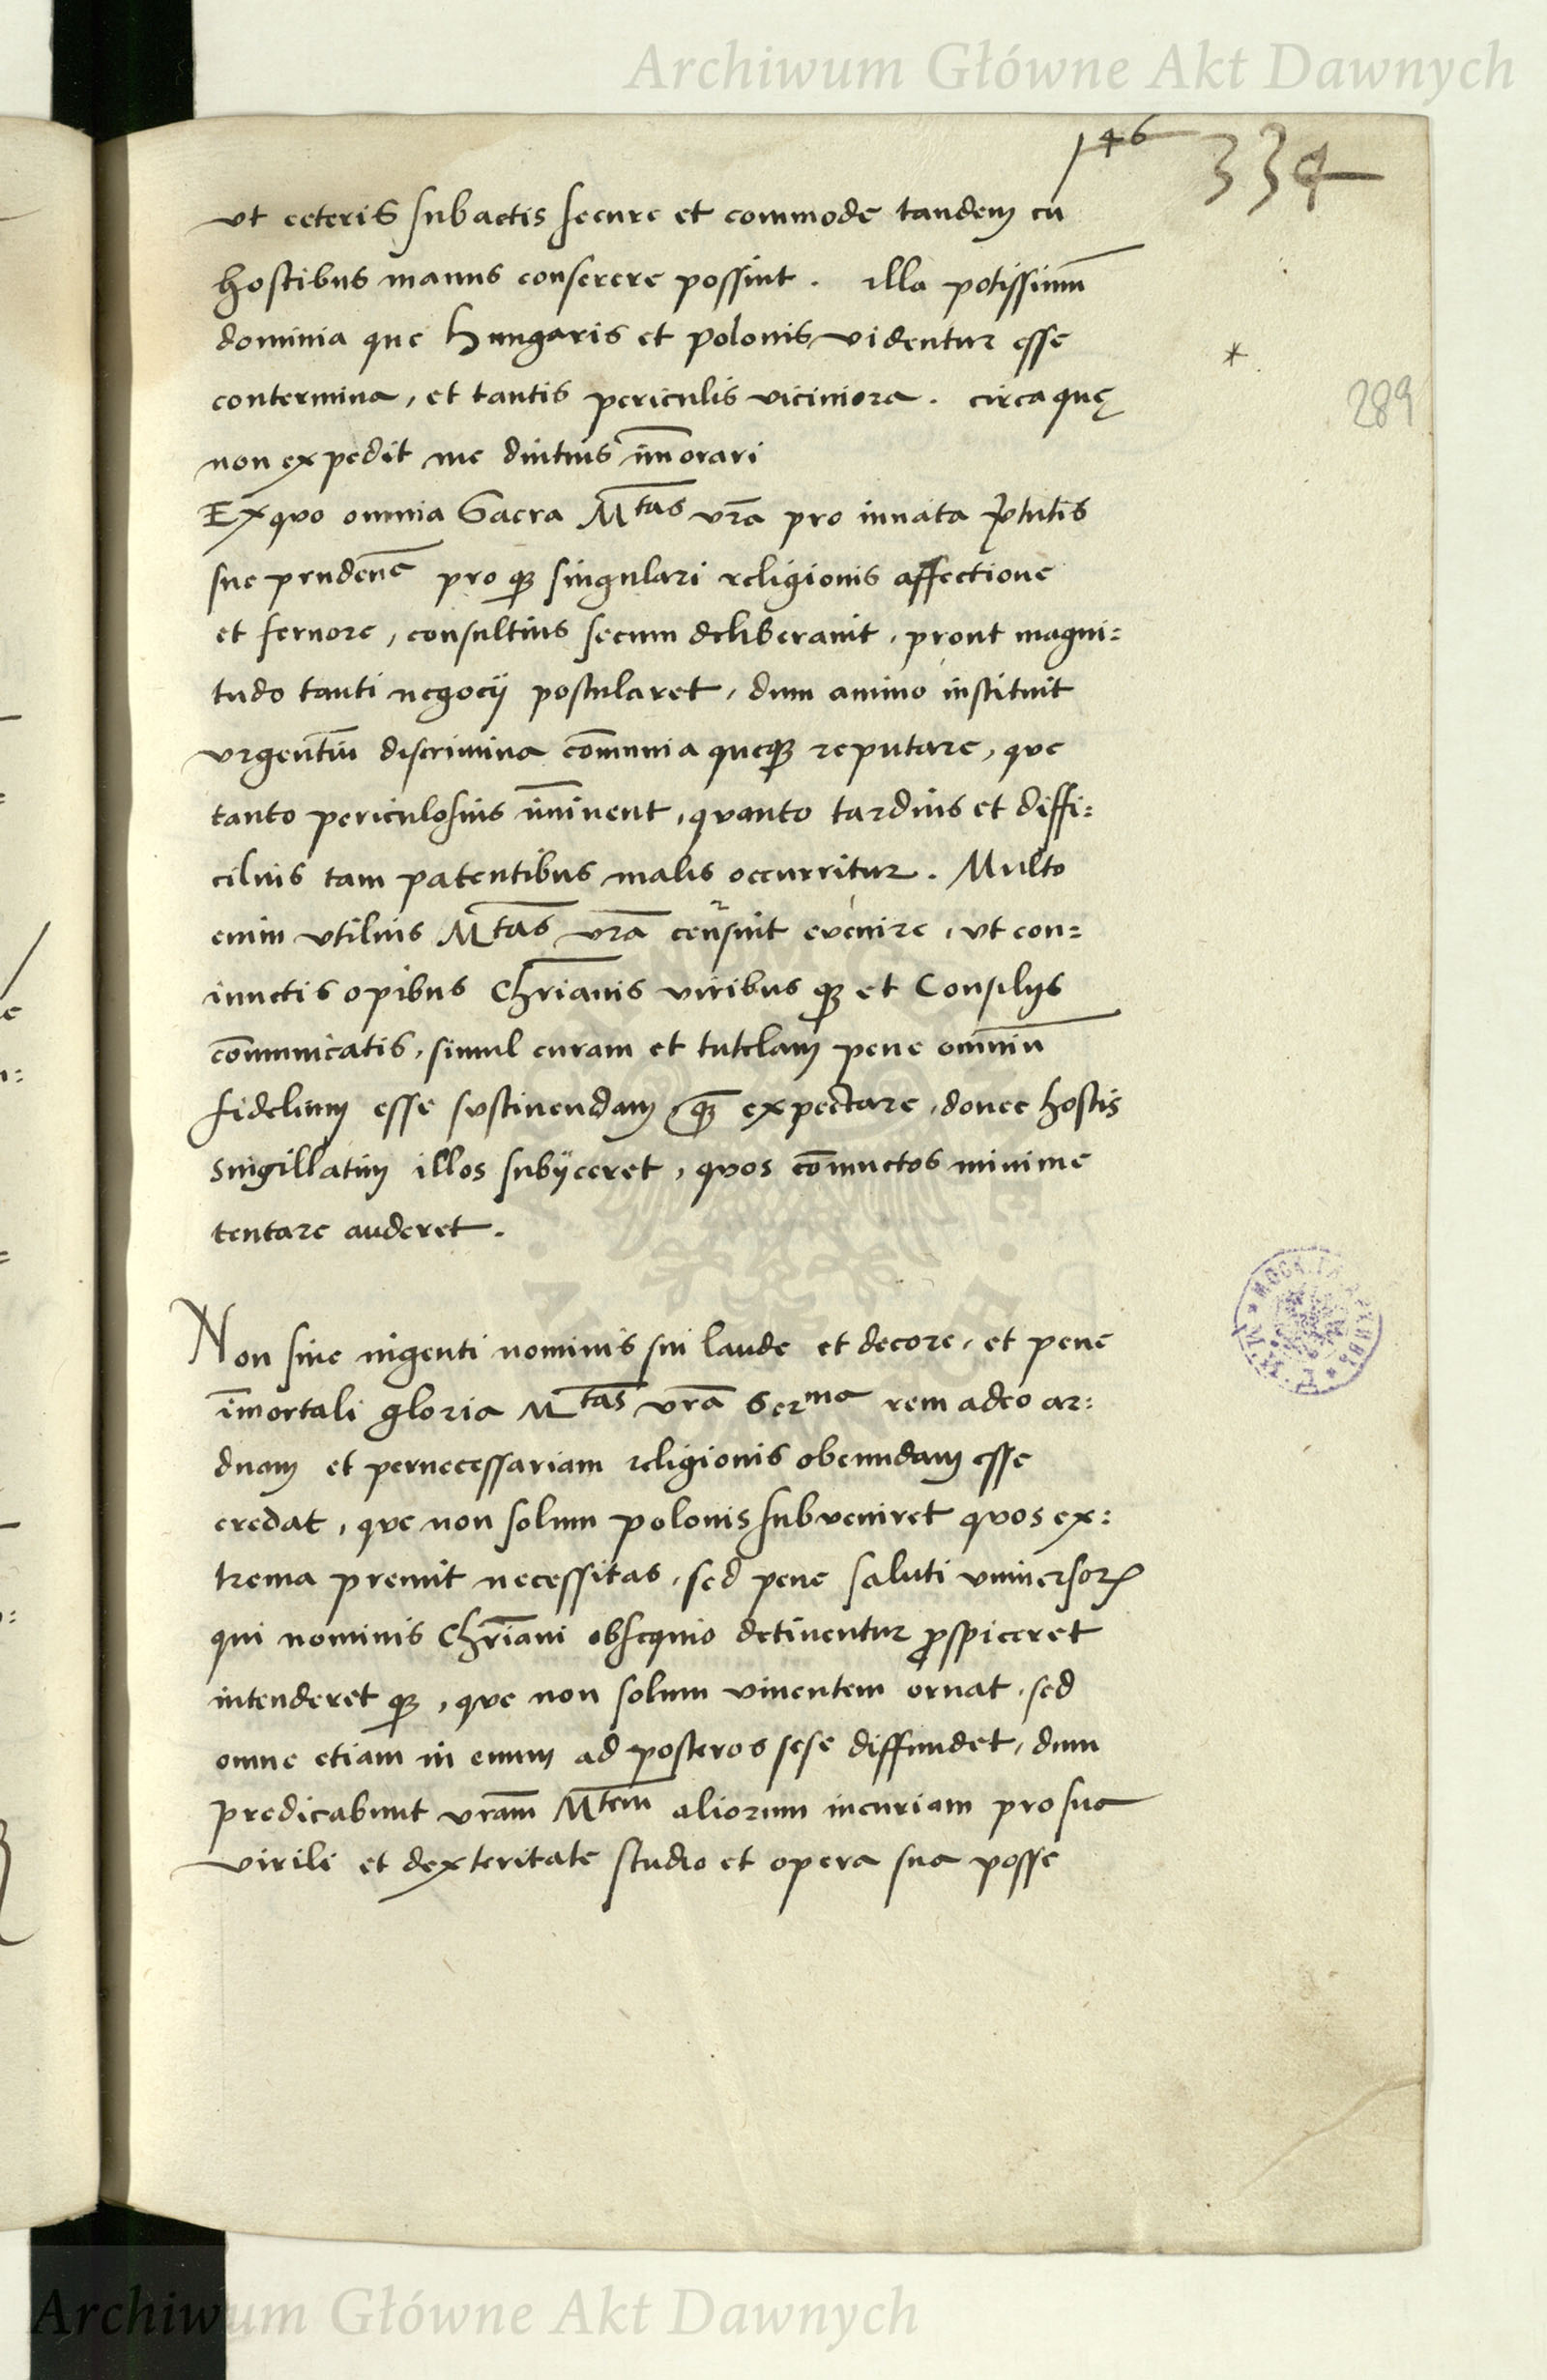 Archiwum Główne Akt Dawnych
146 334
vt ceteris subactis secure et commode tandem cū
hostibus manus conserere possint. illa potissimū
dominia que Hungaris et polonis videntur esse
*
contermina, et tantis periculis viciniora. circa quę
289
non expedit me diutius īmorari
Ex quo omnia Sacra Mtas vr̄a pro innata v̓tutis
sue prudenc̄ pro qȝ singulari religionis affectione
et feruore, consultius secum deliberauit, prout magni:
tudo tanti negocij postularet, dum animo instituit
vrgentiū discrimina cōmunia queqȝ reputare, que
tanto periculosius īminent, quanto tardius et diffi:
cilius tam patentibus malis occurritur. Multo
enim vtilius Mtas vr̄a censuit euenire, vt con:
iunctis opibus Chr̄ianis viribus qȝ et Consilijs
cōmunicatis, simul curam et tutelam pene omniū
fidelium esse sustinendam qȝ̄ expectare, donec hostis
singillatim illos subijceret, quos cōiunctos minime
tentare auderet.
Non sine ingenti nominis sui laude et decore, et pene
īmortali gloria Mtas vr̄a Serma rem adeo ar:
duam et pernecessariam religionis obeundam esse
credat, que non solum polonis subveniret quos ex:
trema premit necessitas, sed pene saluti vniuersorꝝ
qui nominis Chr̄iani obsequio detinentur ꝓspiceret
intenderet qȝ, que non solum viuentem ornat, sed
omne etiam in euum ad posteros sese diffundet, dum
predicabunt vrām Mtem aliorum incuriam pro sua
virili et dexteritate studio et opera sua posse
Archiwum Główne Akt Dawnych